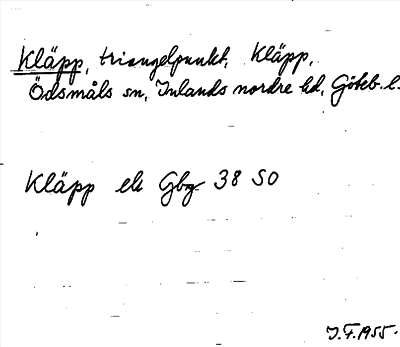 Kläpp, triangelpunkt, Kläpp,
Ödsmåls sn, Inlands nordre hd, Göteb. l.
Kläpp ek Gbg 38 SO
J.F. 1955.